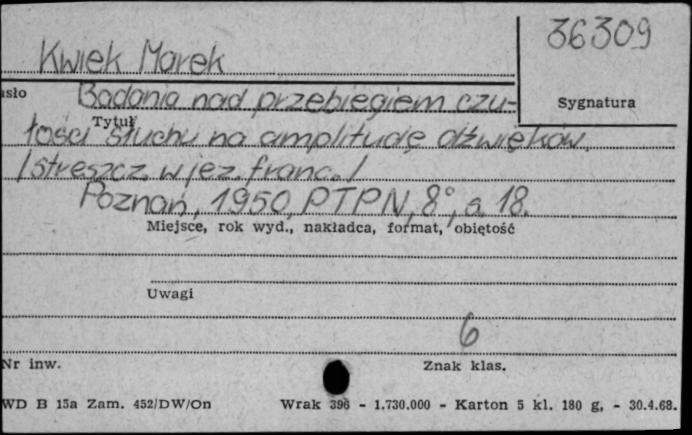 36309
Kwiek Marek
asło
Badania nad przebiegiem czu-
Sygnatura
Tytuł
łości słuchu na amplitudę dźwięków.
/streszcz. w jęz. franc./
Poznań, 1950, PTPN, 8°, s. 18.
Miejsce, rok wyd., nakładca, format, objętość
Uwagi
6
Nr inw.
Znak klas.
WD B 15a Zam. 452/DW/On Wrak 396 - 1.730.000 - Karton 5 kl. 180 g. - 30.4.68.